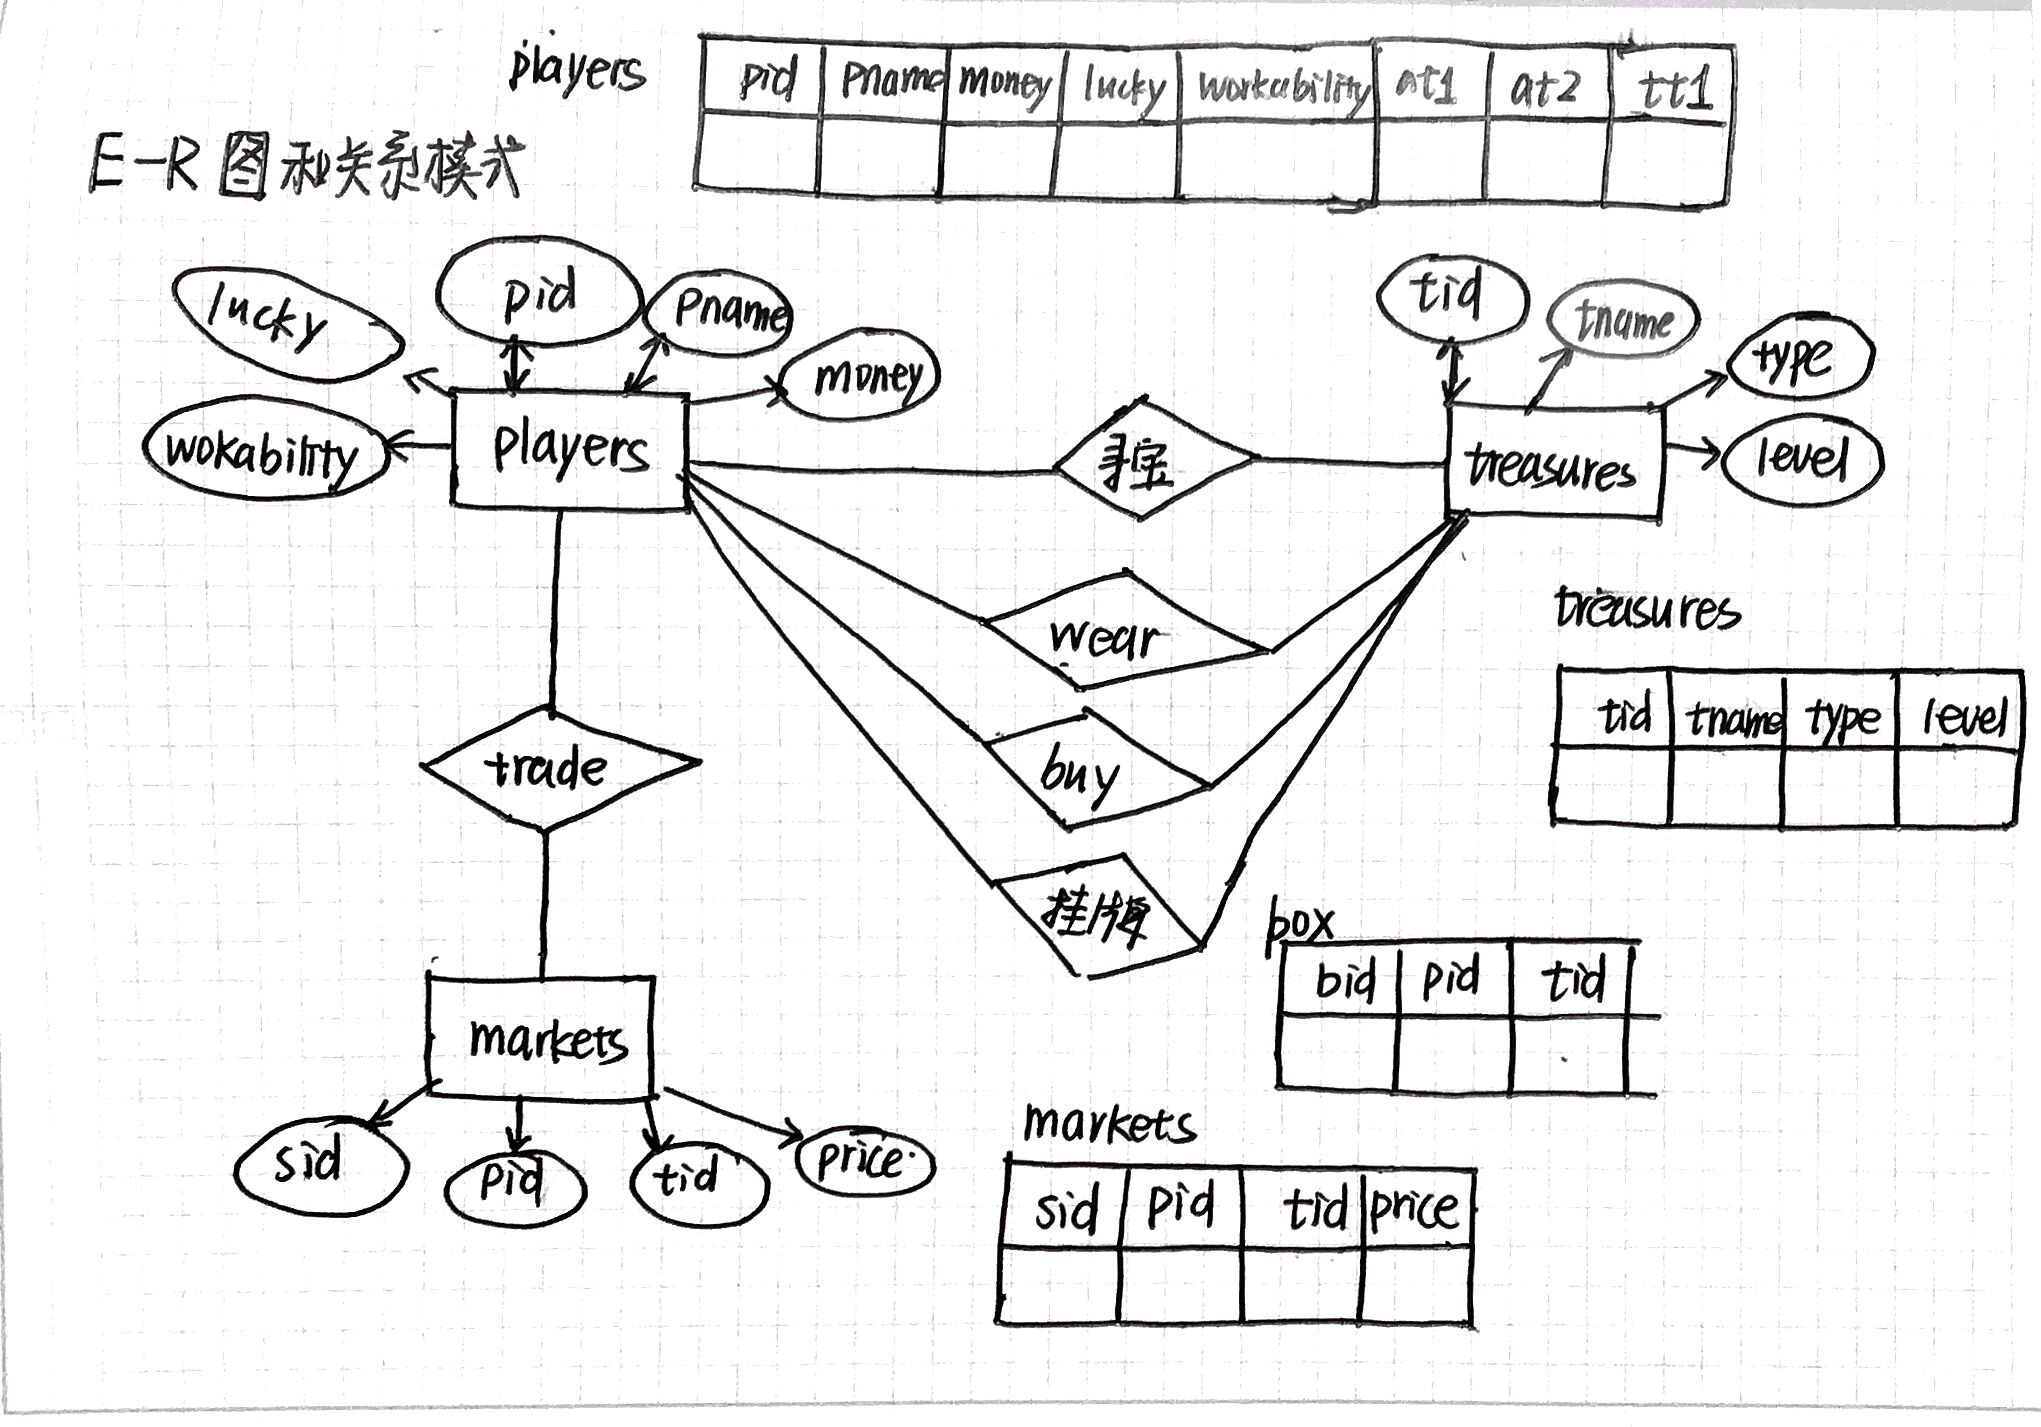 players
pid pname money lucky workability at1 at2 tt1
E-R 图和关系模式
lucky
pid
pname
money
wokability
players
tid
tname
type
level
treasures
寻宝
wear
buy
挂牌
trade
markets
sid
pid
tid
price
treasures
tid tname type level
box
bid pid tid
markets
sid pid tid price